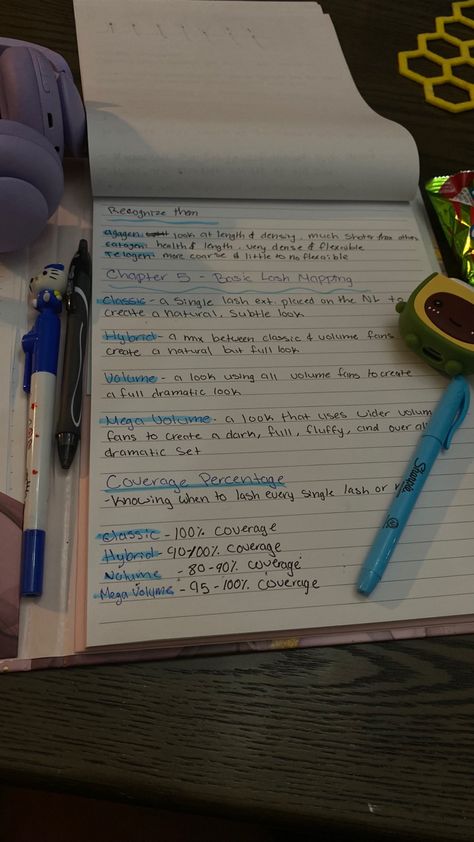 Recognize them
agagen - look at length & density, much shoter than others
catogen - health & length, very dense & flexible
Telogen - more coarse & little to no flexible
Chapter 5 - Basic Lash Mapping
Classic - a single lash ext. placed on the NL to
create a natural, subtle look
Hybrid - a mix between classic & volume fans
create a natural but full look
Volume - a look using all volume fans to create
a full dramatic look
Mega Volume - a look that uses wider volum
fans to create a dark, full, fluffy, and over all
dramatic set
Coverage Percentage
- Knowing when to lash every single lash or
Classic - 100% coverage
Hybrid - 90-100% coverage
Volume - 80-90% coverage
Mega Volume - 95-100% coverage
Sharpie